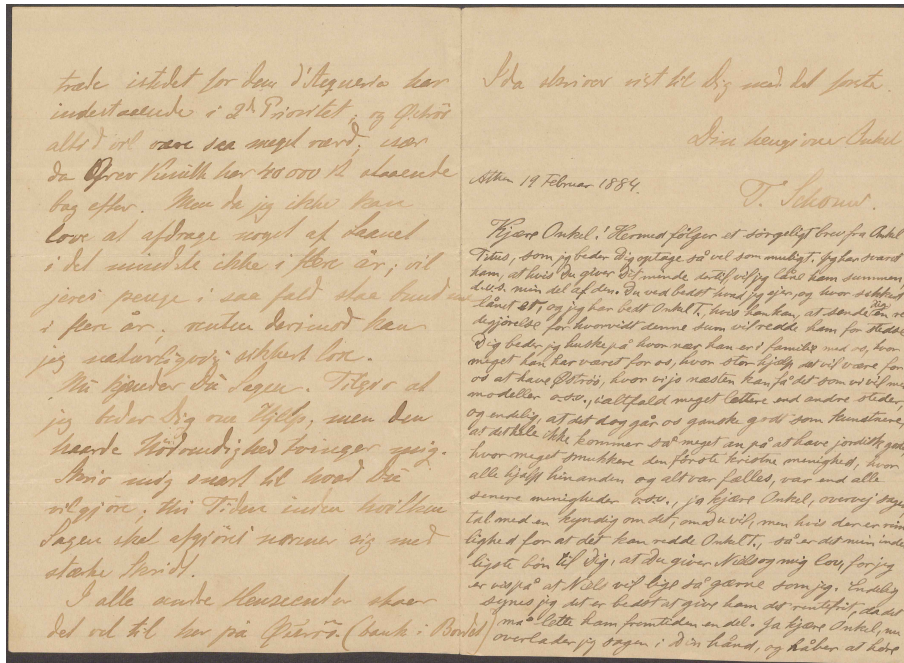 træde istedet for dem d'Aequeria har
indestaaende i 2d Prioritet; og Øströs
altid vil være saa meget værd; især
da Grev Knuth har 40 000 Kr staaende
bag efter. Men da jeg ikke kan
love at afdrage noget af Laanet
i det mindste ikke i flere år; vil
jeres penge i saa fald staa bundne
i flere år; renten derimod kan
jeg naturligvis sikkert love.
Nu kjender Du Sagen. Tilgiv at
jeg beder Dig om Hjelp, men den
haarde Nödvendighed tvinger mig.
Skriv mig snart til hvad Du
vil gjöre; thi Tiden inden hvilken
Sagen skal afgjöres nærmer sig med
stærke Skridt.
I alle andre Henseender staaer
det vel til her på (bank i Bordet)
Ida skriver vist til Dig med det förste.
Din hengivne Onkel
T. Schouw.
Athen 19 Februar 1884.
Kjære Onkel! Hermed fölger et sörgeligt brev fra Onkel
Titus, som jeg beder Dig optage så vel som muligt. Jeg har svaret
ham, at hvis Du giver Dit minde dertil, vil jeg låne ham summen,
d.v.s. min del af den. Du ved bedst hvad jeg ejer, og hvor sikkert
lånet er, og jeg har bedt Onkel T., hvis han kan, at sende Dig en re
degjörelse for hvorvidt denne sum vil redde ham for stedse.
Dig beder jeg huske på hvor nær han er i familie med os, hvor
meget han har været for os, hvor stor hjælp det vil være for
os at have Öströs, hvor vi jo næsten kan få det som vi vil med
modeller o.s.v., ialtfald meget lettere end andre steder,
og endelig, at det dog går os ganske godt som kunstnere,
at det hele ikke kommer så meget an på at have jordisk gods,
hvor meget smukkere den förste kristne menighed, hvor
alle hjalp hinanden og alt var fælles, var end alle
senere menigheder o.s.v., ja kjære Onkel, overvej sagen
tal med en kyndig om det, om Du vil, men hvis der er rime
lighed for at det kan redde Onkel T., så er det min inder
ligste bön til Dig, at Du giver Niels og mig lov, for jeg
er vis på at Niels vil lige så gærne som jeg. Endelig
synes jeg det er bedst at give ham det rentefrit, da det
må lette ham fremtiden en del. Ja kjære Onkel, nu
overlader jeg sagen i Din hånd, og håber at höre